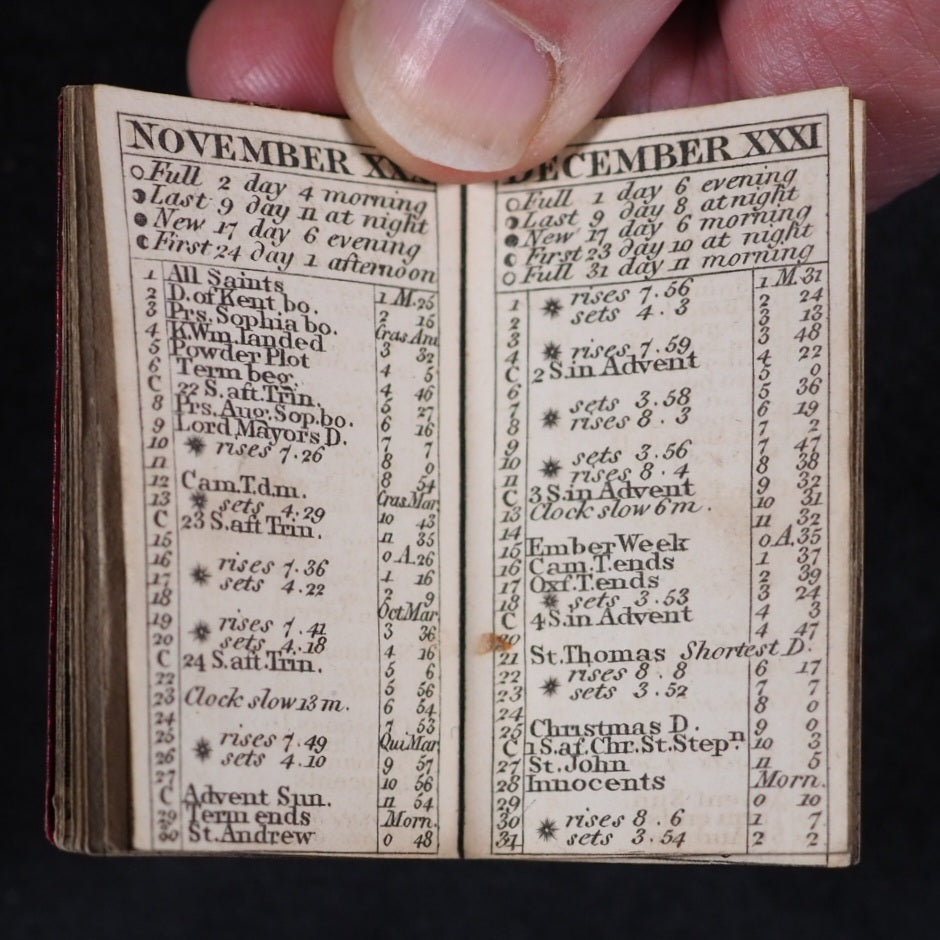 NOVEMBER XXX
Full 2 day 4 morning
Last 9 day 11 at night
New 17 day 6 evening
First 24 day 1 afternoon
1 All Saints 1 M.25
2 D.of Kent bo. 2 15
3 Prs. Sophia bo. Cras.Ani
4 K.Wm.landed 3 32
5 Powder Plot 4 5
6 Term beg. 4 46
C 22 S.aft.Trin. 5 27
8 Prs.Aug.Sop.bo. 6 16
9 Lord Mayors D. 7 7
10 rises 7.26 8 0
11 8 54
12 Cam.T.d.m. Cras.Mar.
13 sets 4.29 10 43
C 23 S.aft Trin. 11 35
15 0 A.26
16 rises 7.36 1 16
17 sets 4.22 2 9
18 Oct Mar.
19 rises 7.41 3 36
20 sets 4.18 4 16
C 24 S.aft.Trin. 5 6
22 5 56
23 Clock slow 13 m. 6 54
24 7 53
25 rises 7.49 Qui Mar
26 sets 4.10 9 57
27 10 56
C Advent Sun. 11 54
29 Term ends Morn.
30 St.Andrew 0 48
DECEMBER XXXI
Full 1 day 6 evening
Last 9 day 8 at night
New 17 day 6 morning
First 23 day 10 at night
Full 31 day 11 morning
1 rises 7.56 1 M.31
2 sets 4.3 2 24
3 3 13
4 rises 7.59 3 48
C 2 S.in Advent 4 22
6 5 0
7 sets 3.58 5 36
8 rises 8.3 6 19
9 7 2
10 sets 3.56 7 47
11 rises 8.4 8 38
C 3 S.in Advent 9 32
13 Clock slow 6 m. 10 31
14 11 32
15 Ember Week 0 A.35
16 Cam.T.ends 1 37
17 Oxf.T.ends 2 39
18 sets 3.53 3 24
C 4 S.in Advent 4 3
20 4 47
21 St.Thomas Shortest D.
22 rises 8.8 6 17
23 sets 3.52 7 7
24 8 0
25 Christmas D. 9 0
C 1 S.af.Chr.St.Stepn. 10 3
27 St.John 11 5
28 Innocents Morn.
29 0 10
30 rises 8.6 1 7
31 sets 3.54 2 2